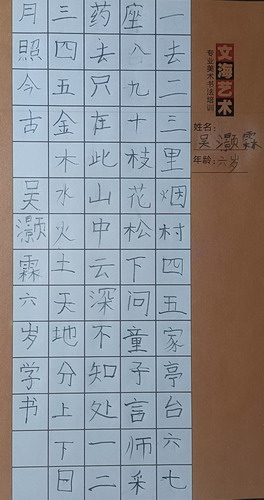 一去二三里烟村四五家亭台六七
座八九十枝花松下问童子言师采
药去只在此山中云深不知处一二
三四五金木水火土天地分上下日
月照今古吴灏霖六岁学书
文海艺术
专业美术书法培训
姓名：吴灏霖
年龄：六岁